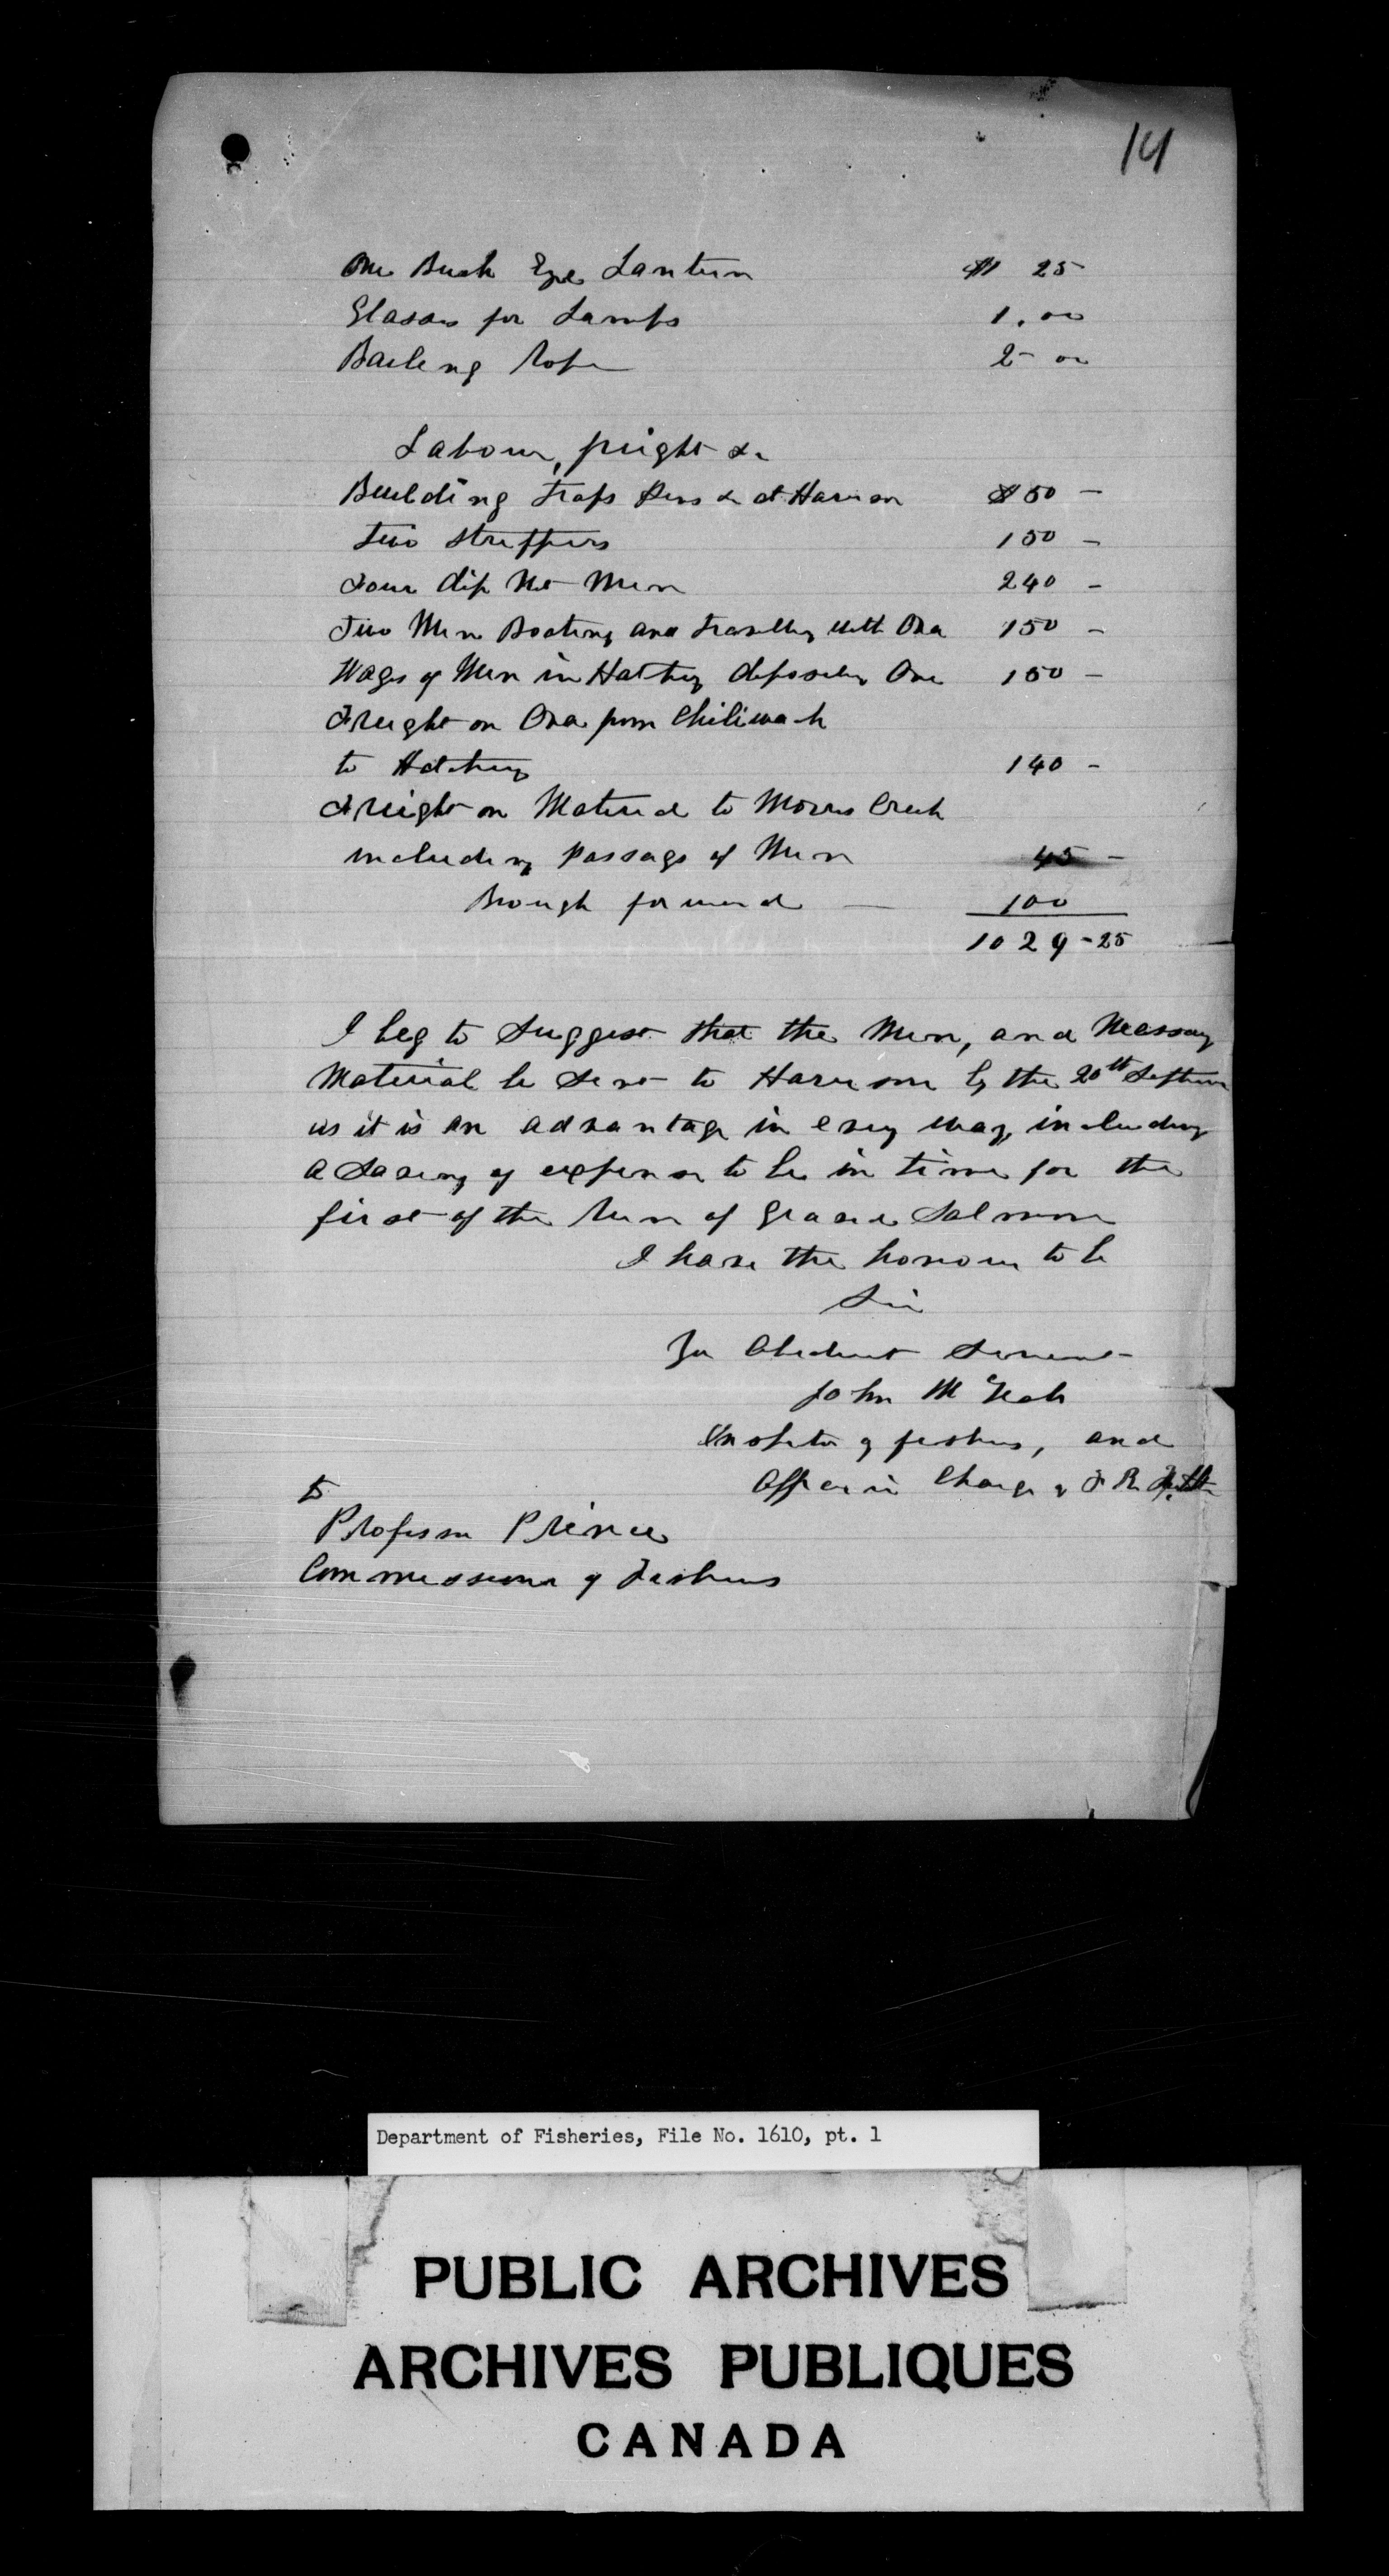 14
One Buck Eye Lantern $1 25
Glasses for Lamps 1.00
Baileng Rope 2 - 00
Labour, freight &c
Building Traps Pens &c at Harrison $50 -
Two Strippers 150 -
Four dip Net Men 240 -
Two Men Boating and travelling with Ova 150 -
Wages of Men in Hatchery depositing Ova 150 -
Freight on Ova from Chiliwack
to Hatchery 140 -
Freight on Material to Morris Creek
including passage of Men 45 -
Brough forward — 100
1029 - 25
I beg to suggest that the Men, and Necessary
Material be sent to Harrison by the 20th
as it is an advantage in every way, including
a saving of expense to be in time for the
first of the run of Salmon
I have the honour to be
Sir
Your Obedient Servant
John McNab
Inspector of fisheries, and
Officer in Charge of F R
to
Professor Prince
Commissioner of Fisheries
Department of Fisheries, File No. 1610, pt. 1
PUBLIC ARCHIVES
ARCHIVES PUBLIQUES
CANADA